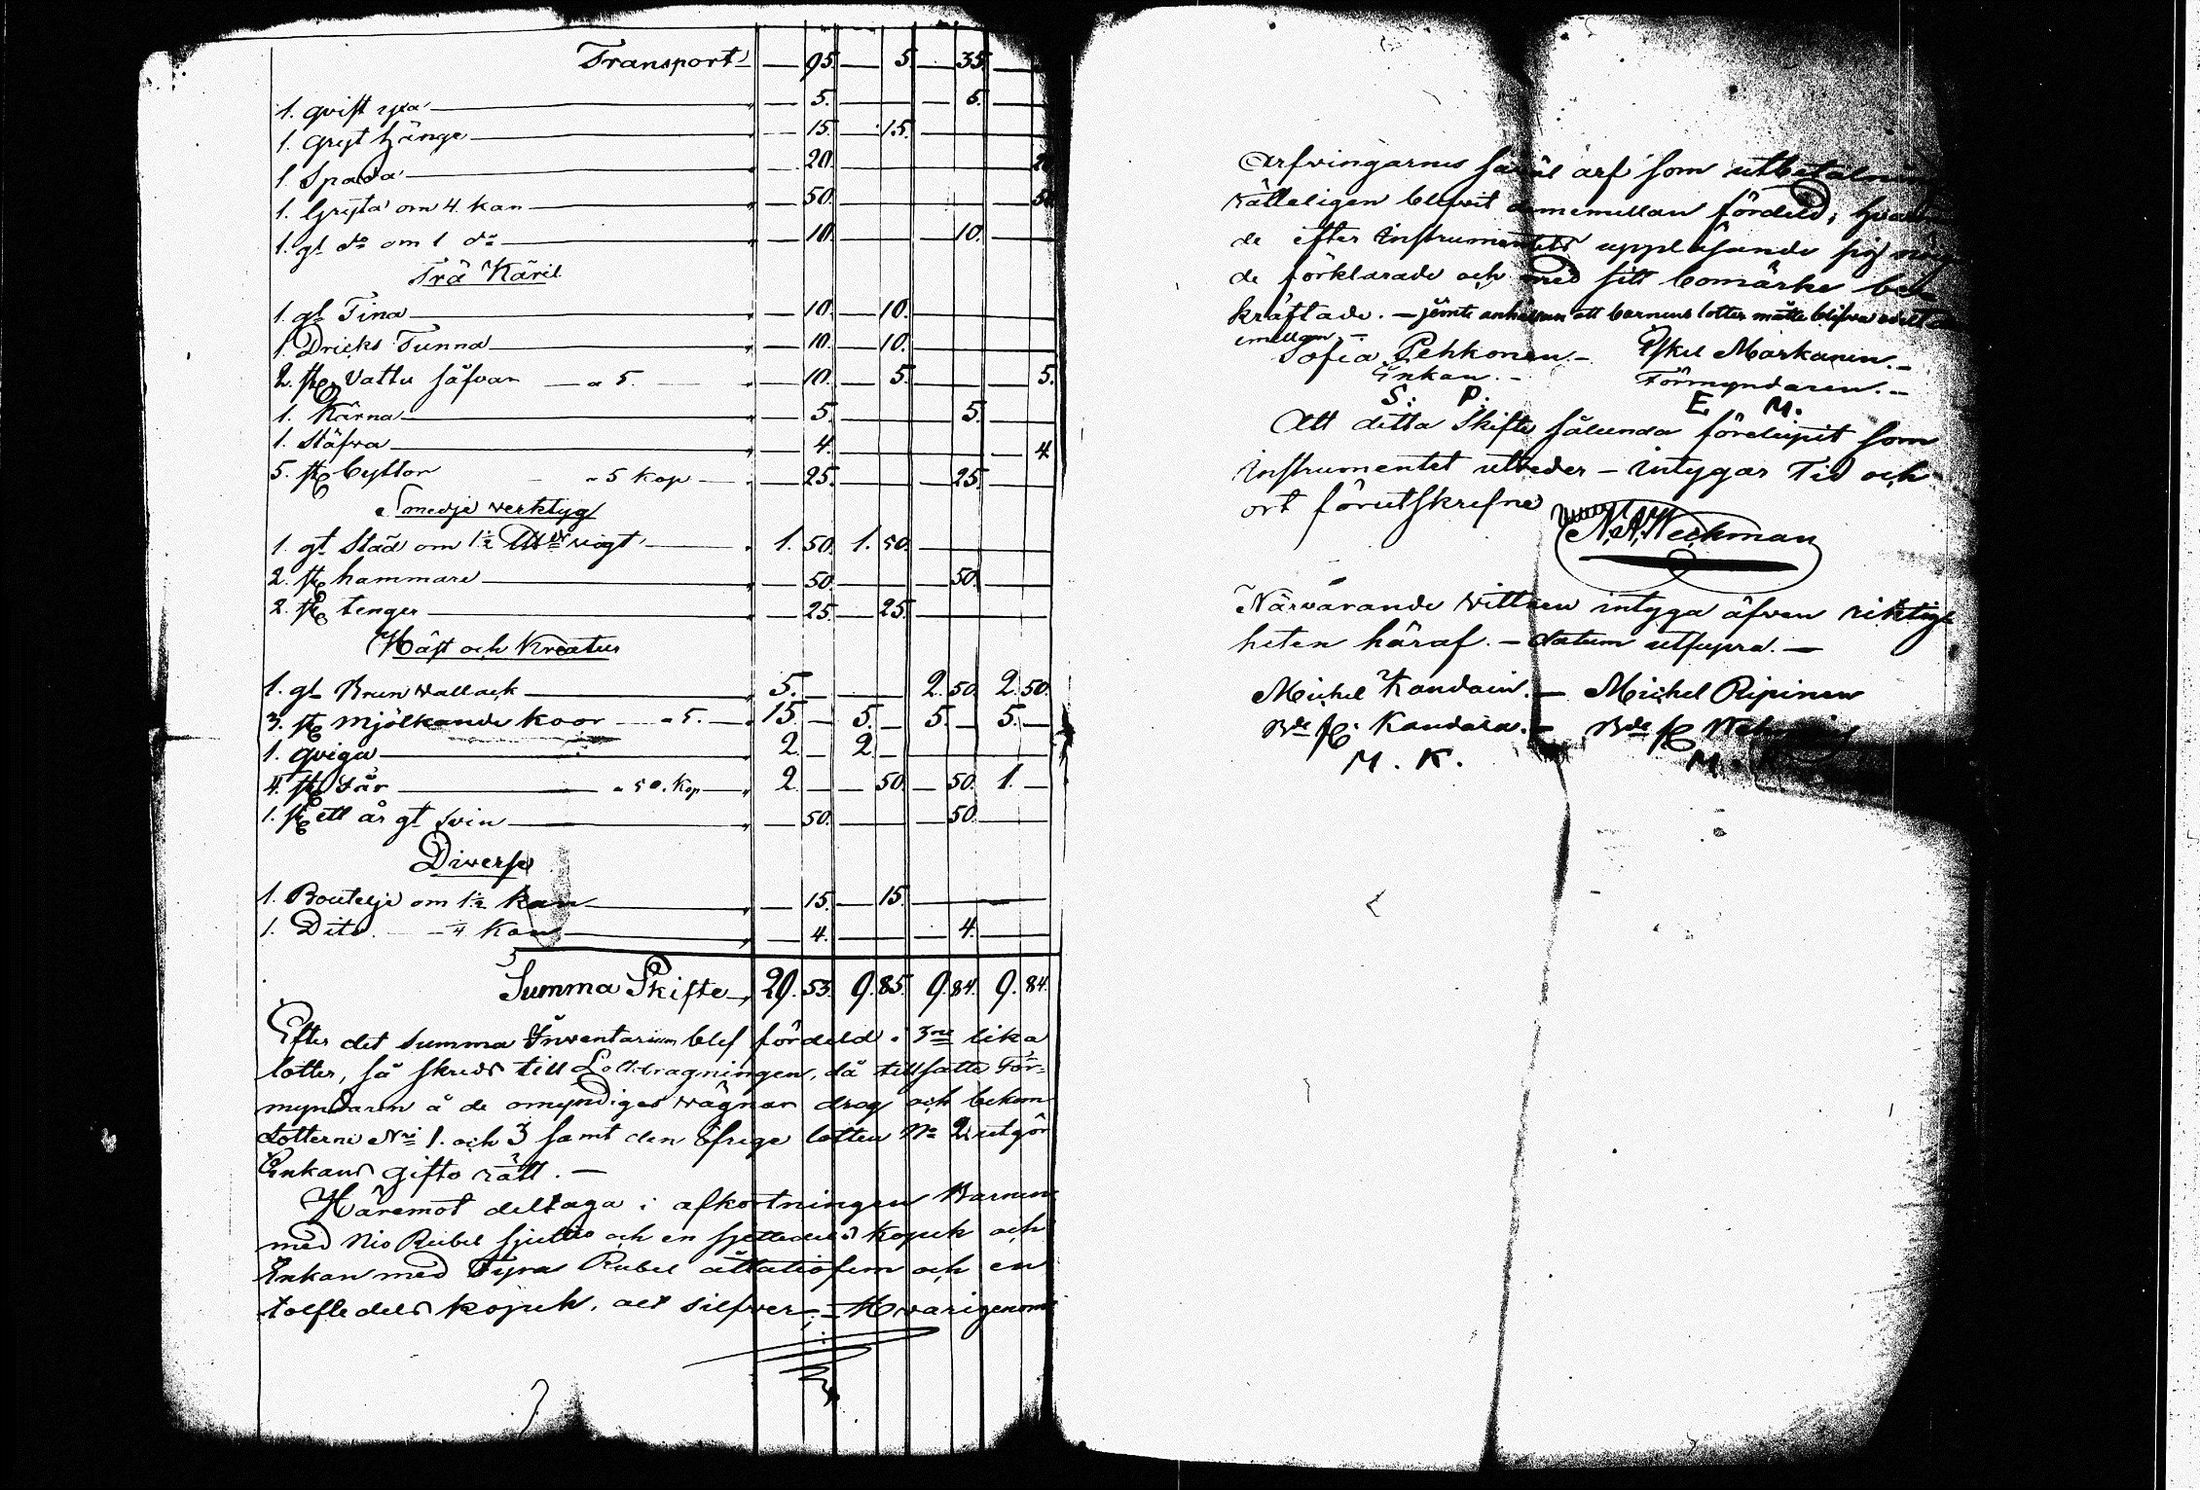 Transport — 95. — 5. — 35. —
1. qvist yxa — 5. — — 5. —
1. Gryt hänge — 15. — 15. —
1. Spada — 20. — — 20
1. Gryta om 4. kan — 50. — — 50
1. gl do om 1 do — 10. — — 10. —
Trä Käril
1. gl Tina — 10. — 10. —
1. Dricks Tunna — 10. — 10. —
2. st Vattu såfvar — a 5. — 10. — 5. — — 5.
1. Kärna — 5. — — 5. —
1. Stäfva — 4. — — 4
5. st byttor a 5 kop — 25. — — 25. —
Smedje verktyg
1. gl Städ om 1½ vigt — 1. 50. 1. 50. —
2. st hammare — 50. — — 50. —
2. st tenger — 25. — 25. —
Häst och Kreatur
1. gl Brun wallack — 5. — — 2. 50. 2. 50.
3. st Mjölkande koor — a 5. — 15. — 5. — 5. — 5. —
1. qviga — 2. — 2. —
4. st Får — a 50. Kop — 2. — — 50. — 50. 1. —
1. st ett år gl Svin — 50. — — 50. —
Diverse
1. Boutelje om 1½ kan — 15. — 15. —
1. Dito — kan — 4. — — 4. —
Summa Skifte — 29. 53. 9. 85. 9. 84. 9. 84.
Efter det summa Inventarium blef fördeld i 3ne lika
lotter, så skreds till Lottdragningen, då tillsatte För-
myndaren å de omyndiges vägnar drog och bekom
Lotterne No 1. och 3 samt den öfrige lotten No 2. utgör
Enkans gifto rätt. —
Häremot deltaga i afkortningen Barnen
med Nio Rubel sjuttio och en sjettedels Kopek och
Enkan med Fyra Rubel åttatiofem och en
tolftedels kopek, alt silfver. — Hvarigenom
Arfvingarnes såväl arf som utbetalning
rätteligen blifvit dememellan fördeld;
de efter Instrumentets uppläsande sig
de förklarade och med sitt bomärke be-
kräftade. — jämte anhållan att barnens lotter måtte blifva
emellan —
Sofia Pehkonen. — Eskel Markanen. —
Enkan. — Förmyndaren. —
S: P: E. M.
Att detta Skifte sålunda förelupit som
Instrumentet utreder — intygar Tid och
ort förutskrefne
N. A. Weckman
Närvarande vittnen intyga äfven riktig-
heten häraf. — datum utsupra. —
Michel Kandain. — Michel Ripinen
Bde fr. Kandala. — Bde fr
M. K. M.